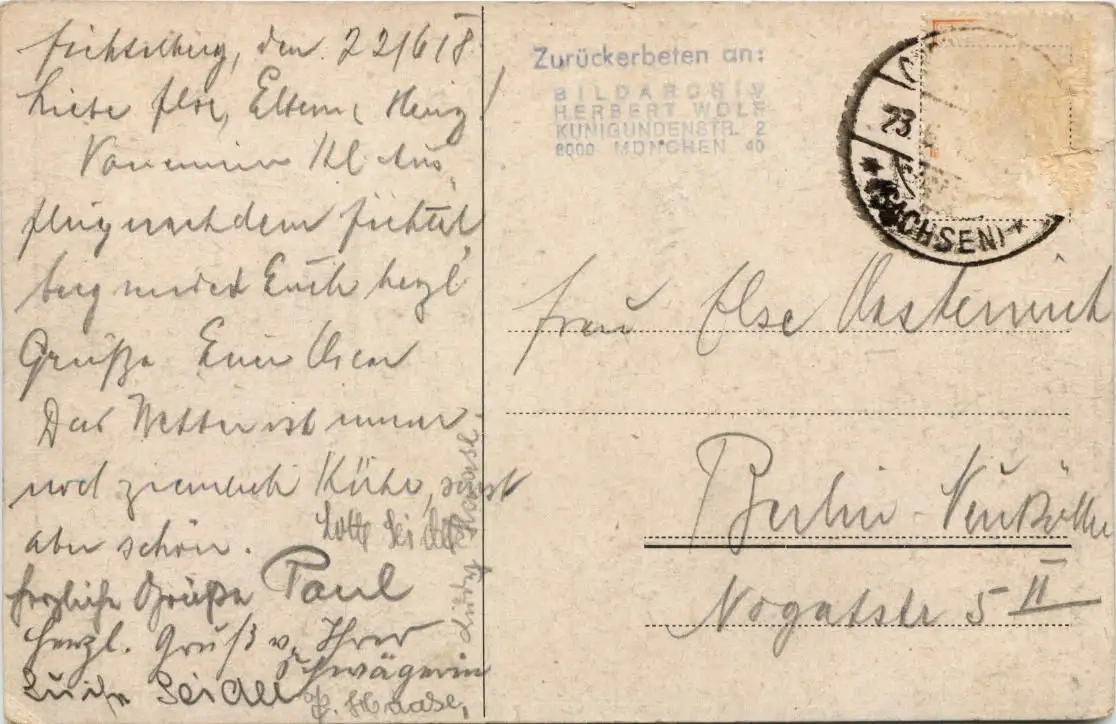 Fichtelberg, den 22/6 18
Liebe Else, Eltern, Heinz!
Von einem kl. Aus-
flug nach dem Fichtel-
berg sendet Euch herzl
Grüße Euer Oscar
Das Wetter ist immer
noch ziemlich Kühe, sonst
aber schön.
Lotte Seidel
Herzliche Grüße Paul
Herzl. Gruß v. Ihrer
Schwägerin
Luise Seidel
Haase
Haase
Zurückerbeten an:
BILDARCHIV
HERBERT WOLF
KUNIGUNDENSTR. 2
8000 MÜNCHEN 40
23. 6.
(SACHSEN)
Frau Else Oesterreich
Berlin-Neukölln
Nogatstr 5 II